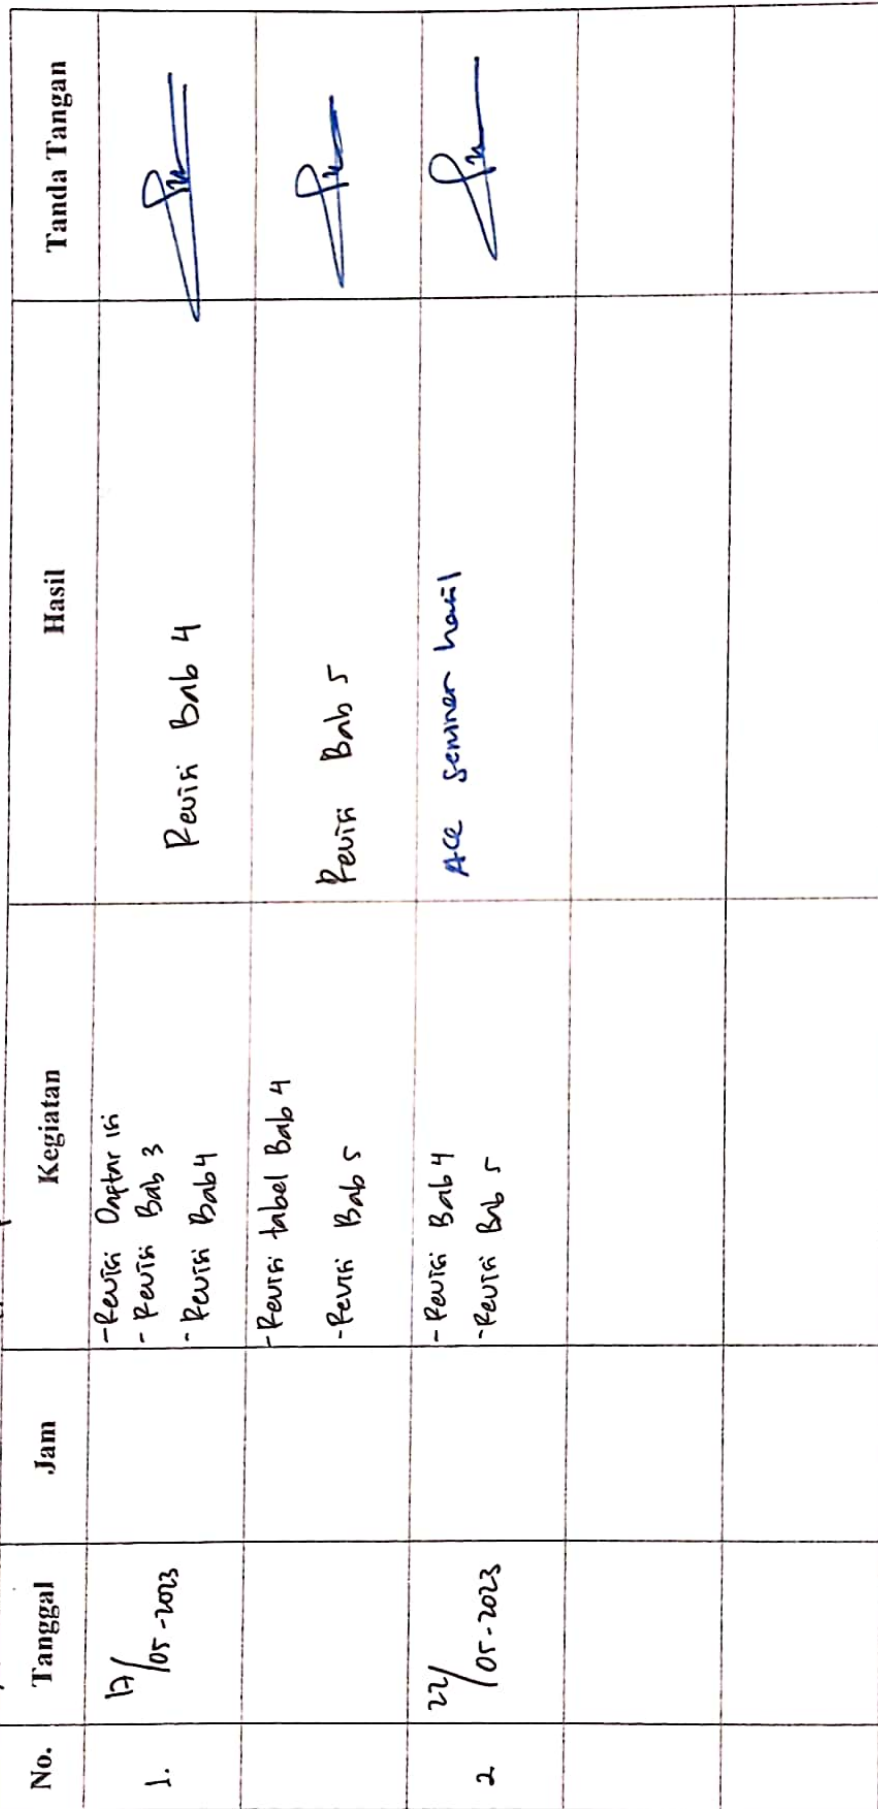 No. Tanggal Jam Kegiatan Hasil Tanda Tangan
1. 17/05-2023
- Revisi Daftar isi
- Revisi Bab 3
- Revisi Bab 4
Revisi Bab 4
- Revisi tabel Bab 4
- Revisi Bab 5
Revisi Bab 5
2 22/05-2023
- Revisi Bab 4
- Revisi Bab 5
Acc seminar hasil